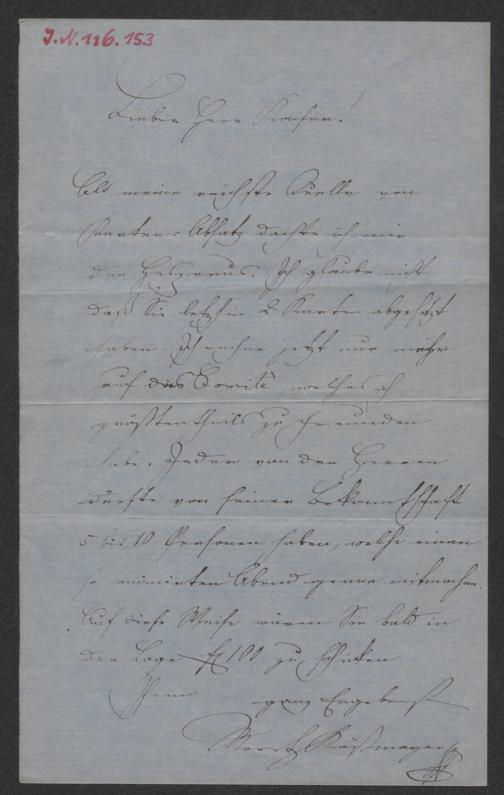 J.N. 116.153
Lieber Herr Kaiser!
Als meine reichste Quelle von
Karten-Absatz dachte ich mir
den Hesperus. Ich glaube nicht
daß Sie letzhin 2 Karten abgesetzt
haben. Ich rechne jetzt nur mehr
auf das Comité, welches ich
größtentheils zu Freunden
habe. Jeder von den Herren
dürfte von seiner Bekanntschaft
5 bis 10 Personen haben, welche einen
so animirten Abend gerne mitmachen.
Auf diese Weise wären Sie bald in
der Lage 100 zu schicken
Ihrem ganz Ergebenst
Moritz Käßmayer